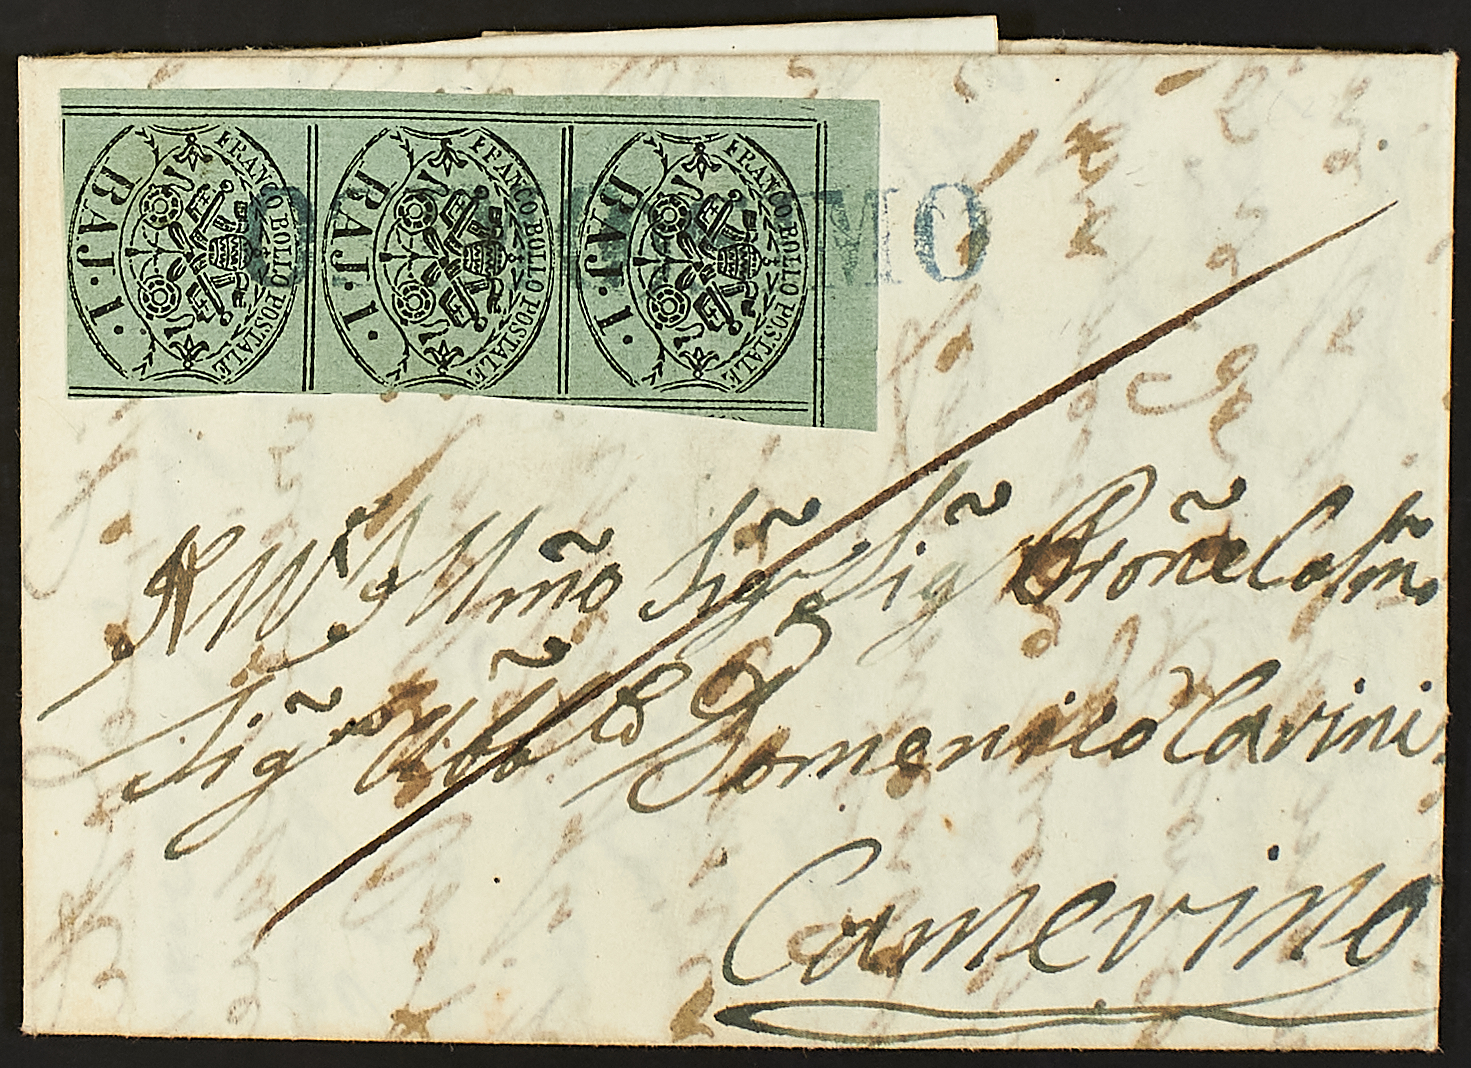 FRANCO BOLLO POSTALE
BAJ·1·
FRANCO BOLLO POSTALE
BAJ·1·
FRANCO BOLLO POSTALE
BAJ·1·
Illm̃o Sig̃ Sig̃ Prõne Colm̃o
Sig̃ Domenico Cavini
Camerino